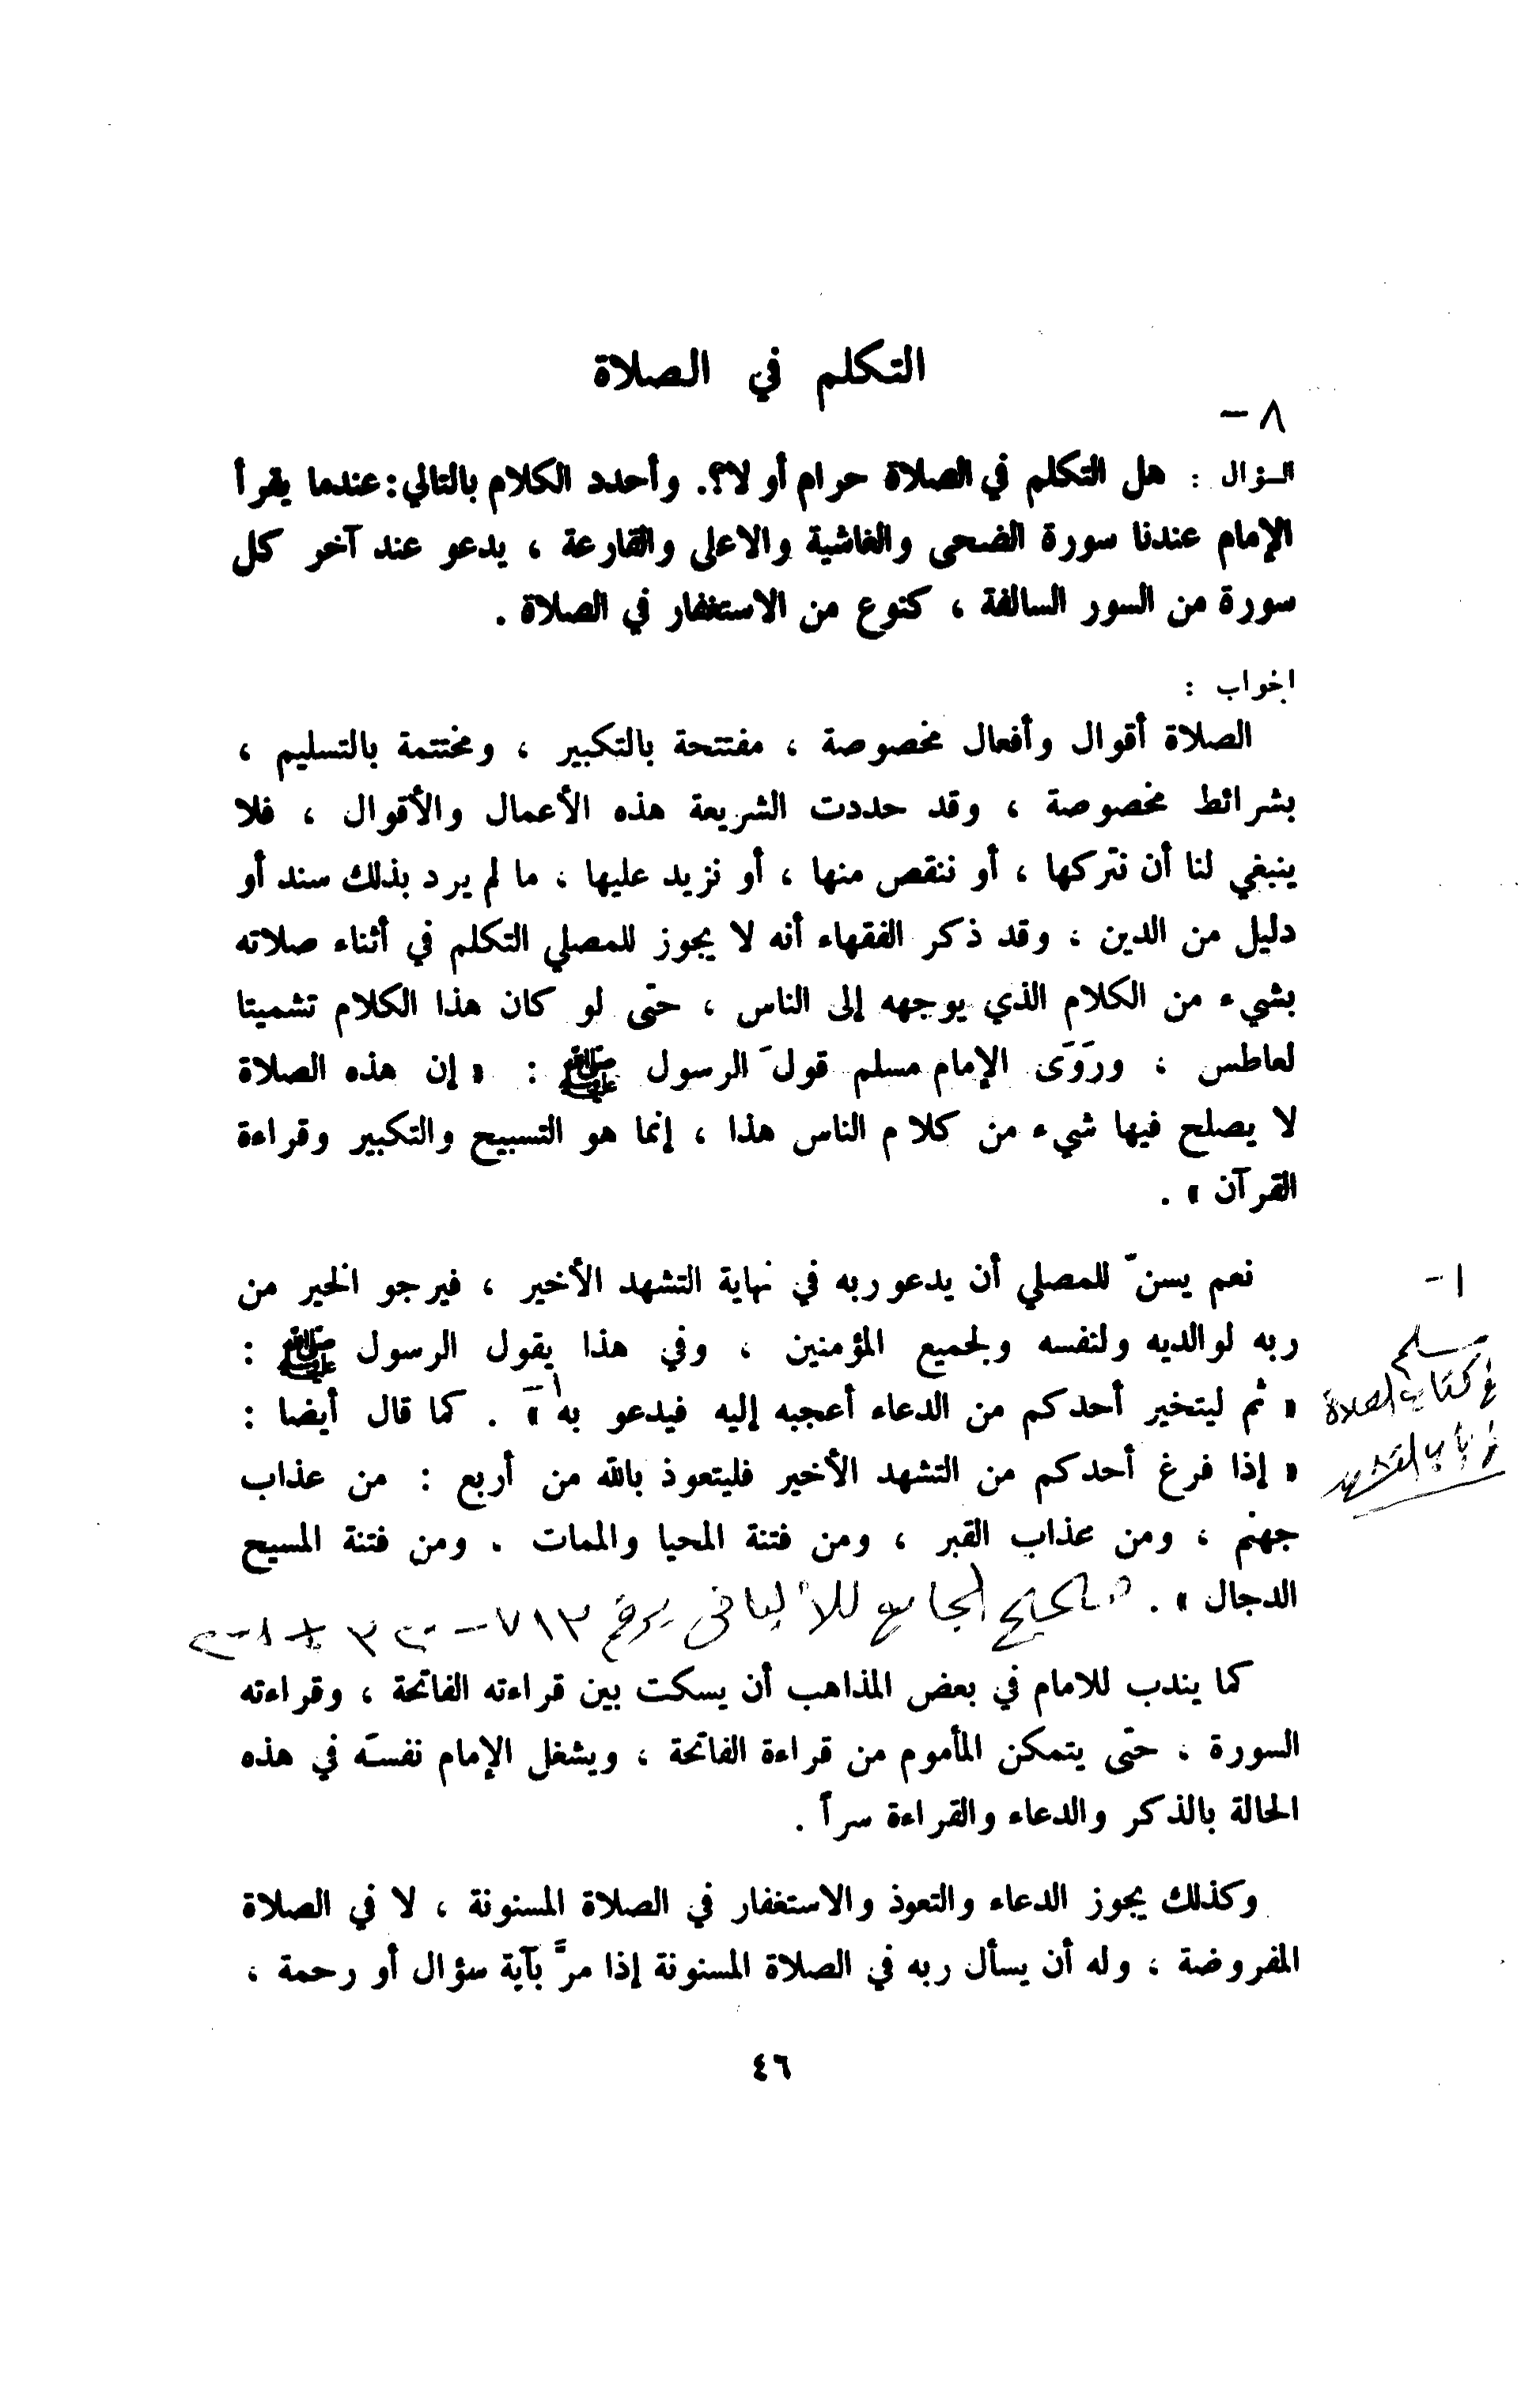 التكلم في الصلاة
٨ –
السؤال : هل التكلم في الصلاة حرام أو لا؟. وأحدد الكلام بالتالي: عندما يقرأ
الإمام عندنا سورة الضحى والغاشية والاعلى والقارعة ، يدعو عند آخر كل
سورة من السور السالفة ، كنوع من الاستغفار في الصلاة .
الجواب :
الصلاة أقوال وأفعال مخصوصة ، مفتتحة بالتكبير ، ومختتمة بالتسليم ،
بشرائط مخصوصة ، وقد حددت الشريعة هذه الأعمال والأقوال ، فلا
ينبغي لنا أن نتركها ، أو ننقص منها ، أو نزيد عليها ، ما لم يرد بذلك سند أو
دليل من الدين ، وقد ذكر الفقهاء أنه لا يجوز للمصلي التكلم في أثناء صلاته
بشيء من الكلام الذي يوجهه إلى الناس ، حتى لو كان هذا الكلام تشميتا
لعاطس ، وروَى الإمام مسلم قولَ الرسول ﷺ : « إن هذه الصلاة
لا يصلح فيها شيء من كلام الناس هذا ، إنما هو التسبيح والتكبير وقراءة
القرآن » .
نعم يسنّ للمصلي أن يدعو ربه في نهاية التشهد الأخير ، فيرجو الخير من
ربه لوالديه ولنفسه ولجميع المؤمنين ، وفي هذا يقول الرسول ﷺ :
« ثم ليتخير أحدكم من الدعاء أعجبه إليه فيدعو به » ١– . كما قال أيضا :
« إذا فرغ أحدكم من التشهد الأخير فليتعوذ بالله من أربع : من عذاب
جهنم ، ومن عذاب القبر ، ومن فتنة المحيا والممات . ومن فتنة المسيح
الدجال » . صحيح الجامع للألباني برقم ٧١٣
١ –
مسلم
في كتاب الصلاة
في باب التشهد
كما يندب للامام في بعض المذاهب أن يسكت بين قراءته الفاتحة ، وقراءته
السورة ، حتى يتمكن المأموم من قراءة الفاتحة ، ويشغل الإمام نفسَه في هذه
الحالة بالذكر والدعاء والقراءة سراً .
وكذلك يجوز الدعاء والتعوذ والاستغفار في الصلاة المسنونة ، لا في الصلاة
المفروضة ، وله أن يسأل ربه في الصلاة المسنونة إذا مرَّ بآية سؤال أو رحمة ،
٤٦